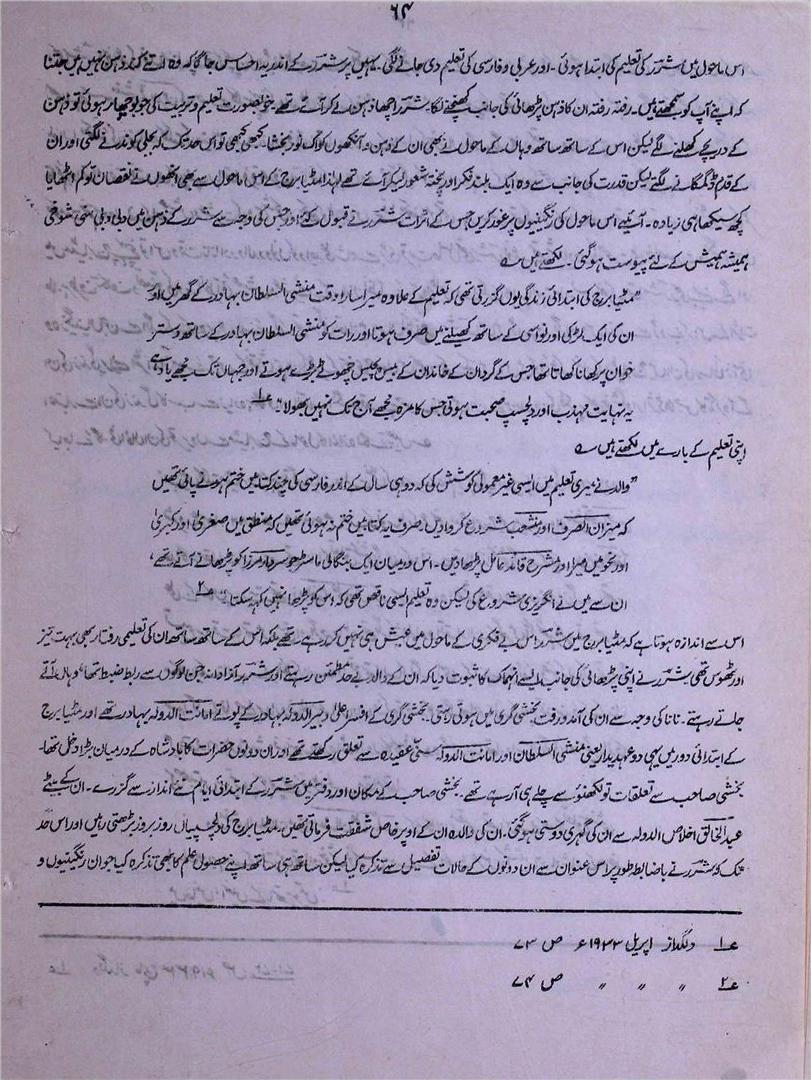 ۶۴
اس ماحول میں شررؔ کی تعلیم کی ابتدا ہوئی ۔ اور عربی و فارسی کی تعلیم دی جانے لگی ۔ یہیں پر شررؔ کے اندر یہ احساس جاگا کہ وہ اتنے کند ذہن نہیں ہیں جتنا
کہ اپنے آپ کو سمجھتے ہیں۔ رفتہ رفتہ ان کا ذہن پڑھائی کی جانب کھنچنے لگا۔ شررؔ اچھا ذہن لے کر آئے تھے ۔ خوبصورت تعلیم و تربیت کی جو بوچھار ہوئی تو ذہن
کے دریچے کھلنے لگے لیکن اس کے ساتھ ساتھ وہاں کے ماحول نے بھی ان کے ذہن و آنکھوں کو اک نور بخشا۔ کبھی کبھی تو اس حد تک کہ بجلی کوندنے لگتی اور ان
کے قدم ڈگمگانے لگتے لیکن قدرت کی جانب سے وہ ایک بلند فکر اور پختہ شعور لیکر آئے تھے لہٰذا مٹیا برج کے اس ماحول سے بھی انھوں نے نقصان تو کم اٹھایا
کچھ سیکھا ہی زیادہ ۔ آیئے اس ماحول کی رنگینیوں پر غور کریں جس کے اثرات شررؔ نے قبول کئے اور جس کی وجہ سے شرر کے ذہن میں دبی دبی سی شوخی
ہمیشہ ہمیش کے لئے پیوست ہوگئی ۔ لکھتے ہیں ؎
”مٹیا برج کی ابتدائی زندگی یوں گزرتی تھی کہ تعلیم کے علاوہ میرا سارا وقت منشی السلطان بہادر کے گھر میں اور
ان کی ایک لڑکی اور نواسی کے ساتھ کھیلنے میں صرف ہوتا اور رات کو منشی السلطان بہادر کے ساتھ دستر
خوان پر کھانا کھاتا تھا جس کے گرد ان کے خاندان کے بیس پچیس چھوٹے بڑے ہوتے اور جہاں تک مجھے یاد ہے
یہ نہایت مہذب اور دلچسپ صحبت ہوتی جس کا مزہ مجھے آج تک نہیں بھولا“ ؏۱
اپنی تعلیم کے بارے میں لکھتے ہیں ؎
”والد نے میری تعلیم میں ایسی غیر معمولی کوشش کی کہ دو ہی سال کے اندر فارسی کی چند کتابیں ختم ہونے پائی تھیں
کہ میزان الصرف اور منشعب شروع کروا دیں۔ صرف یہ کتابیں ختم نہ ہوئی تھیں کہ منطق میں صغریٰ اور کبریٰ
اور نحو میں میر اور شرح مائۃ عامل پڑھا دیں ۔ اس درمیان ایک بنگالی ماسٹر جو سردار مرزا کو پڑھانے آتے تھے،
ان سے میں نے انگریزی شروع کی لیکن وہ تعلیم ایسی ناقص تھی کہ اس کو پڑھا نہیں کہہ سکتا“ ؏۲
اس سے اندازہ ہوتا ہے کہ مٹیا برج میں شررؔ اس بے فکری کے ماحول میں عیش ہی نہیں کر رہے تھے بلکہ اس کے ساتھ ساتھ ان کی تعلیمی رفتار بھی بہت تیز
اور ٹھوس تھی شررؔ نے اپنی پڑھائی کی جانب ایسے انہماک کا ثبوت دیا کہ ان کے والد بے حد مطمئن رہتے اور شررؔ آزادانہ جن لوگوں سے ربط ضبط تھا، وہاں آتے
جاتے رہتے ۔ نانا کی وجہ سے ان کی آمد و رفت بخشی گری میں ہوتی رہتی ۔ بخشی گری کے افسر اعلیٰ دبیر الدولہ بہادر کے پوتے امانت الدولہ بہادر تھے اور مٹیا برج
کے ابتدائی دور میں یہی دو عہدیدار یعنی منشی السلطان اور امانت الدولہ سنی عقیدہ سے تعلق رکھتے تھے اور ان دونوں حضرات کا بادشاہ کے درمیان بڑا دخل تھا۔
بخشی صاحب سے تعلقات تو لکھنؤ سے چلے ہی آ رہے تھے ۔ بخشی صاحب کے مکان اور دفتر میں شررؔ کے ابتدائی ایام نئے انداز سے گزرے ۔ ان کے بیٹے
عبدالخالق اخلاص الدولہ سے ان کی گہری دوستی ہوگئی ۔ ان کی والدہ ان کے اوپر خاص شفقت فرماتی تھیں ۔ مٹیا برج کی دلچسپیاں روز بروز بڑھتی رہیں اور اس حد
تک کہ شررؔ نے باضابطہ طور پر اس عنوان سے ان دونوں کے حالات تفصیل سے تذکرہ کیا لیکن ساتھ ہی ساتھ اپنے حصول علم کا بھی تذکرہ کیا جو ان رنگینیوں و
؏۱ دلگداز اپریل ۱۹۳۳ء ص ۷۳
؏۲ ״ ״ ״ ص ۷۴